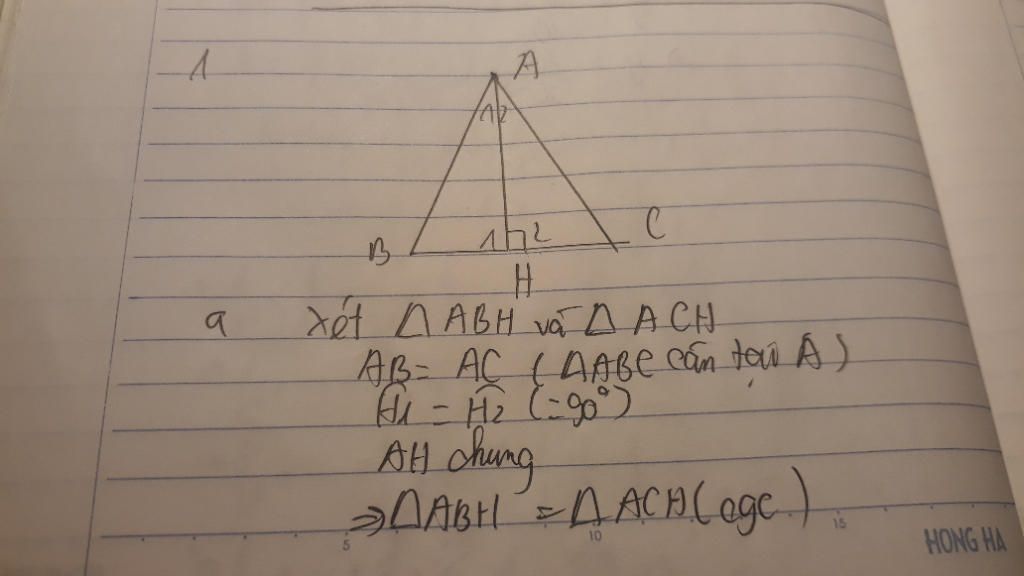 1
A
1 2
B 1 2 C
H
a Xét △ABH và △ACH
AB = AC (△ABC cân tại A)
Ĥ1 = Ĥ2 (=90°)
AH chung
⇒ △ABH = △ACH (cgc)
5 10 15 HONG HA